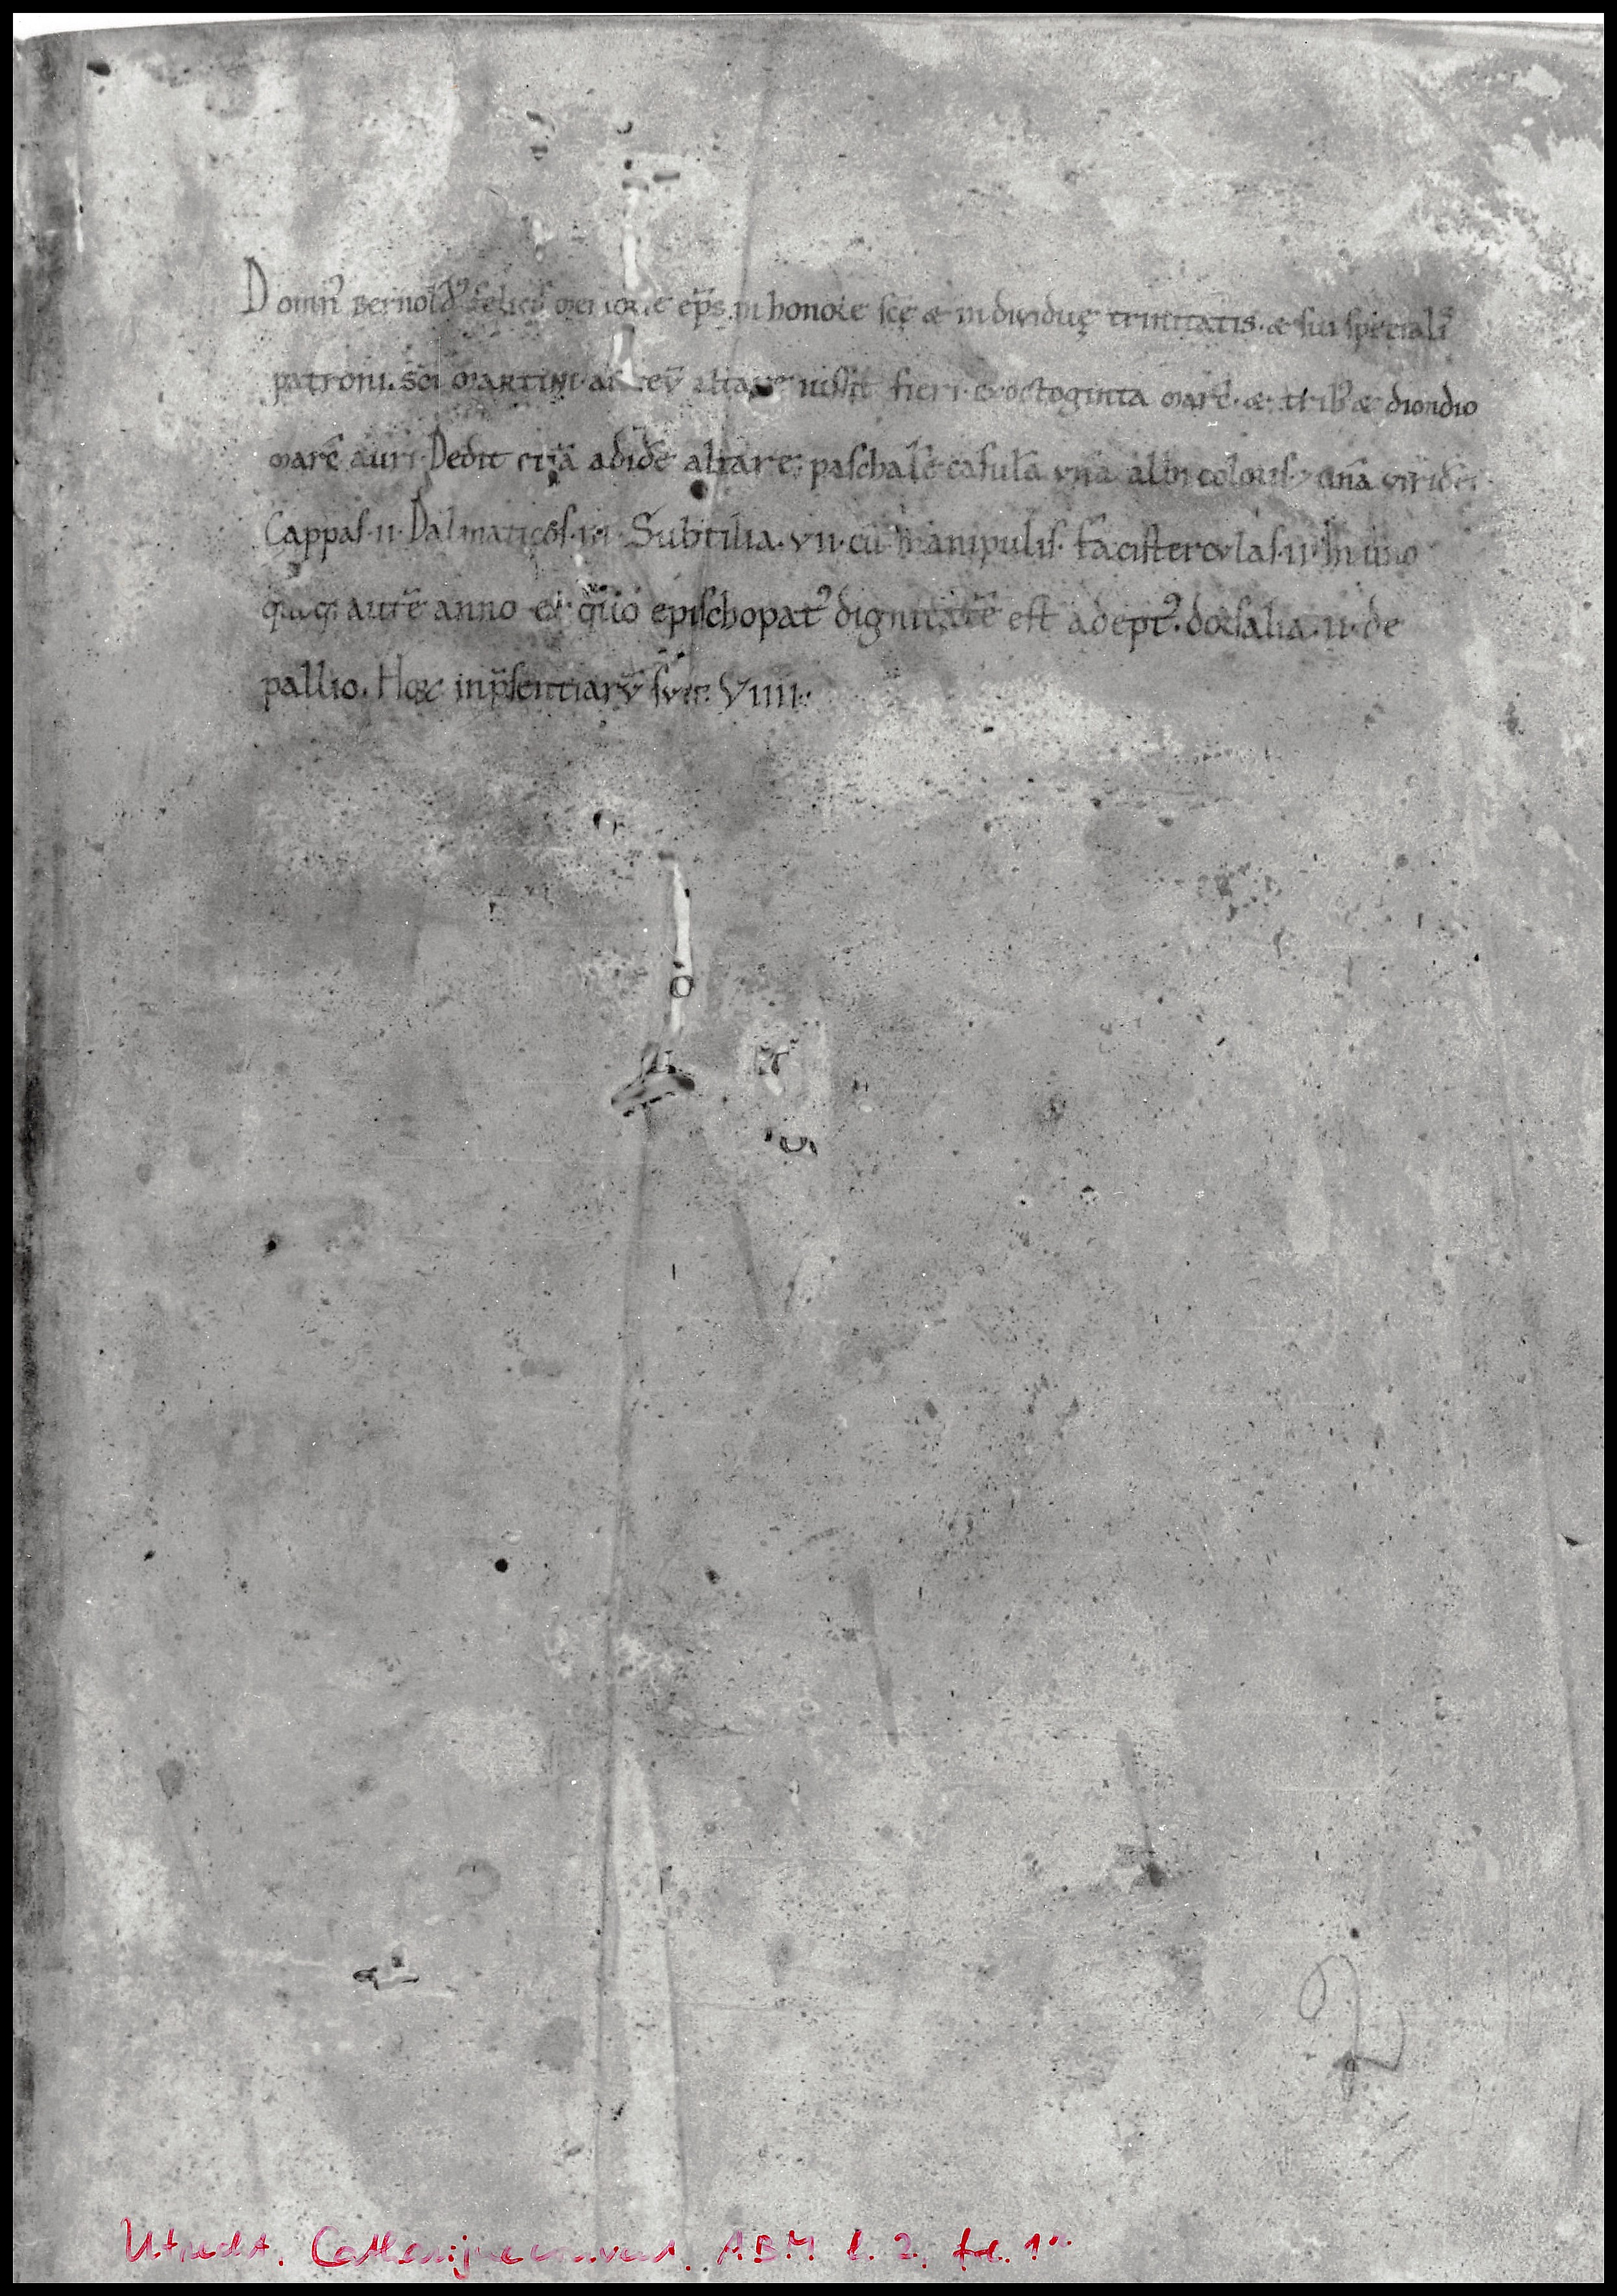 Domn⁹ Bernold⁹ felicis memorie ep̄s. in honore scę & individuę trinitatis. & sui speciali
patroni. sc̄i martini. altare iussit fieri. ex octoginta marc̄. & trib⁹ & dimidio
marc̄ auri. Dedit etiā ad idē altare. paschalē casulā unā albi coloris. unā viridē.
Cappas. II. Dalmaticas. III. Subtilia. VII. cū manipulis. facistervlas. II. In uno
quoq; autē anno ex quo epischopat⁹ dignitatē est adept⁹. dorsalia. II. de
pallio. Hęc inp̄sentiarv̄ svnt. VIIII.
2
Utrecht. Catharijneconvent. ABM h. 2, fol. 1r